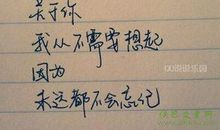 关于你
我从不需要想起
因为
永远都不会忘记
QQ说说乐园